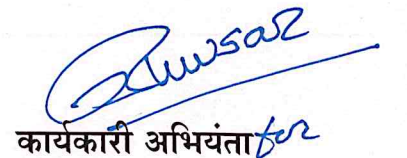 कार्यकारी अभियंता for